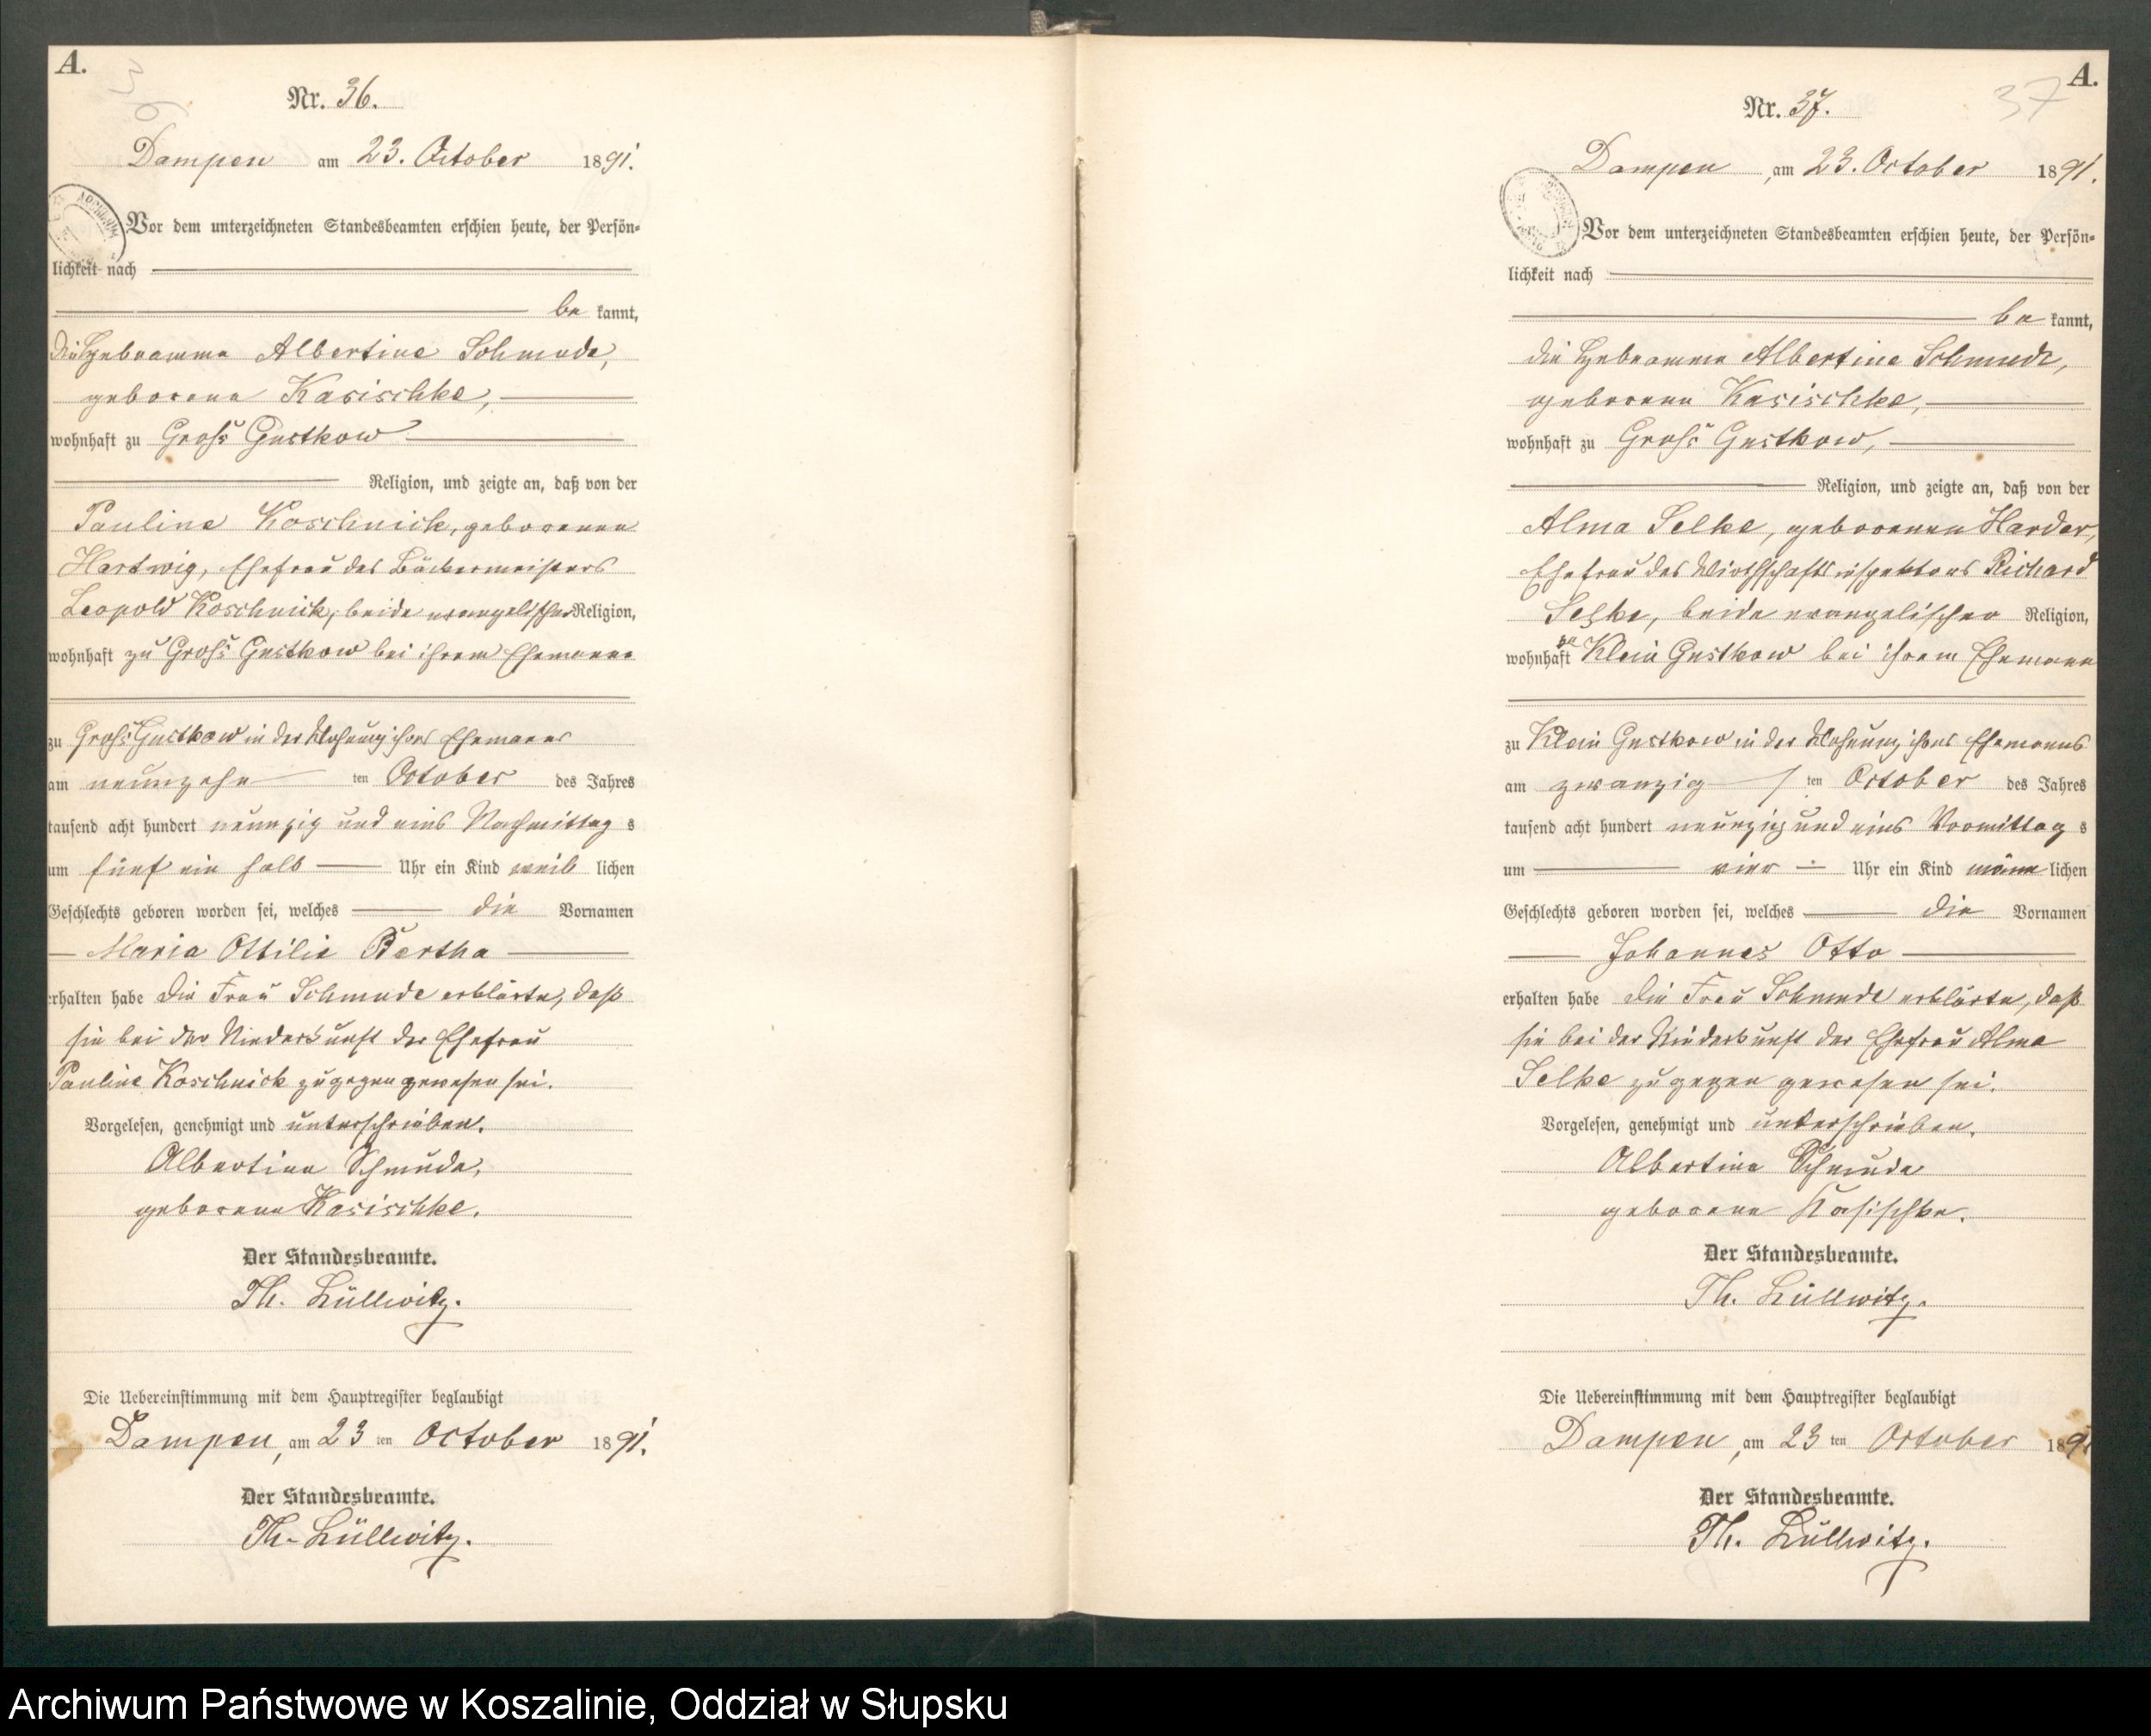 A.
36
Nr. 36.
Dampen am 23. October 1891.
Vor dem unterzeichneten Standesbeamten erschien heute, der Persön-
lichkeit nach
be kannt,
die Hebeamme Albertine Schmude,
geborene Kasischke,
wohnhaft zu Groß Gustkow
Religion, und zeigte an, daß von der
Pauline Koschnick, geborenen
Hartwig, Ehefrau des Bäckermeisters
Leopold Koschnick, beide evangelischer Religion,
wohnhaft zu Groß Gustkow bei ihrem Ehemanne
zu Groß Gustkow in der Wohnung ihres Ehemanns
am neunzehn ten October des Jahres
tausend acht hundert neunzig und eins Nachmittag s
um fünf ein halb Uhr ein Kind weib lichen
Geschlechts geboren worden sei, welches die Vornamen
Maria Ottilie Bertha
erhalten habe Die Frau Schmude erklärte, daß
sie bei der Niederkunft der Ehefrau
Pauline Koschnick zugegen gewesen sei.
Vorgelesen, genehmigt und unterschrieben.
Albertine Schmude,
geborene Kasischke.
Der Standesbeamte.
Th. Lüllwitz.
Die Uebereinstimmung mit dem Hauptregister beglaubigt
Dampen, am 23 ten October 1891.
Der Standesbeamte.
Th. Lüllwitz.
A.
37
Nr. 37.
Dampen, am 23. October 1891.
Vor dem unterzeichneten Standesbeamten erschien heute, der Persön-
lichkeit nach
be kannt,
die Hebeamme Albertine Schmude,
geborene Kasischke,
wohnhaft zu Groß Gustkow,
Religion, und zeigte an, daß von der
Alma Selke, geborenen Harder,
Ehefrau des Wirthschaftsinspektors Richard
Selke, beide evangelischer Religion,
wohnhaft zu Klein Gustkow bei ihrem Ehemann
zu Klein Gustkow in der Wohnung ihres Ehemanns
am zwanzig ten October des Jahres
tausend acht hundert neunzig und eins Vormittag s
um vier Uhr ein Kind männ lichen
Geschlechts geboren worden sei, welches die Vornamen
Johannes Otto
erhalten habe Die Frau Schmude erklärte, daß
sie bei der Niederkunft der Ehefrau Alma
Selke zugegen gewesen sei.
Vorgelesen, genehmigt und unterschrieben.
Albertine Schmude
geborene Kasischke.
Der Standesbeamte.
Th. Lüllwitz.
Die Uebereinstimmung mit dem Hauptregister beglaubigt
Dampen, am 23 ten October 1891
Der Standesbeamte.
Th. Lüllwitz.
Archiwum Państwowe w Koszalinie, Oddział w Słupsku